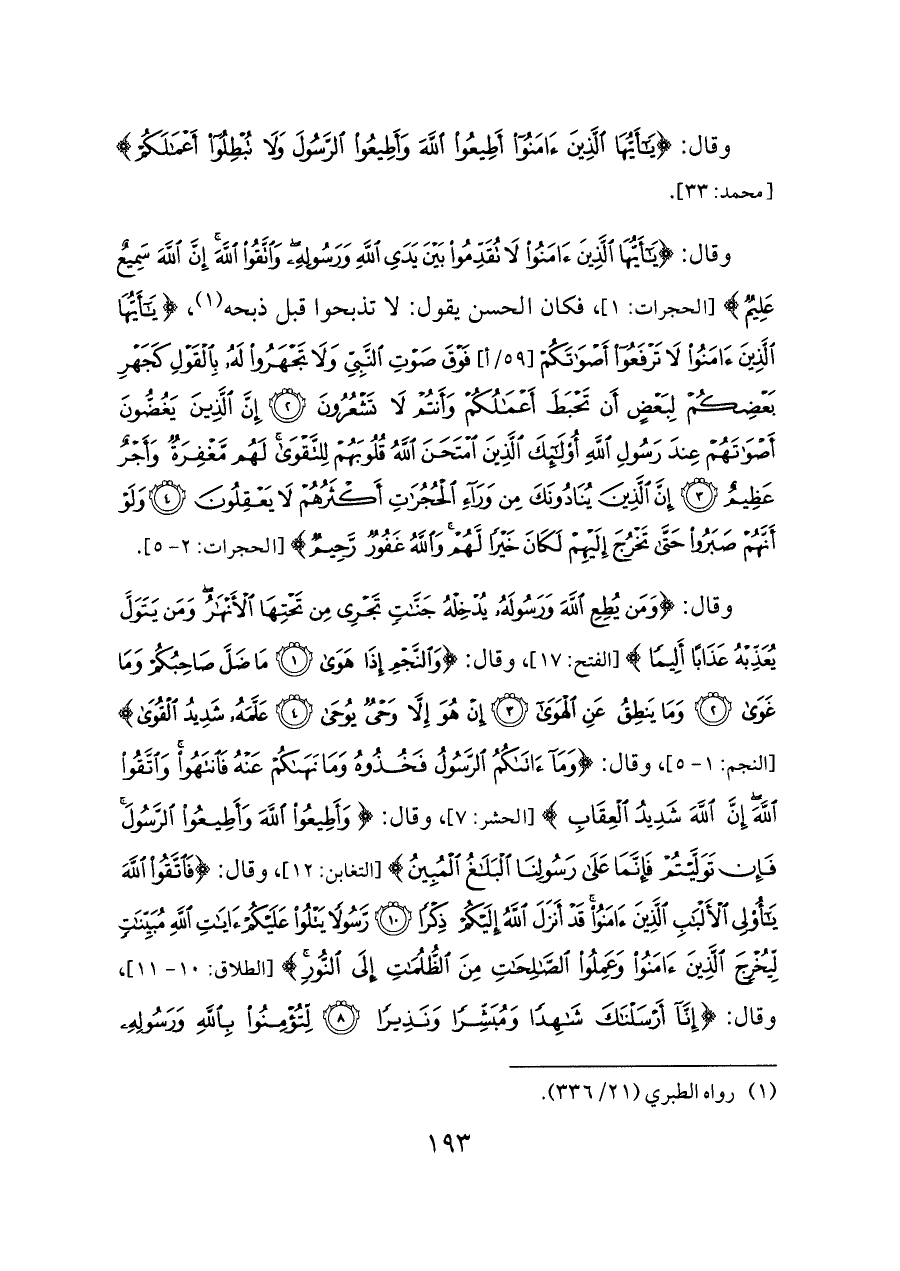 وقال: ﴿يَٰٓأَيُّهَا ٱلَّذِينَ ءَامَنُوٓا۟ أَطِيعُوا۟ ٱللَّهَ وَأَطِيعُوا۟ ٱلرَّسُولَ وَلَا تُبْطِلُوٓا۟ أَعْمَٰلَكُمْ﴾
[محمد: ٣٣].
وقال: ﴿يَٰٓأَيُّهَا ٱلَّذِينَ ءَامَنُوا۟ لَا تُقَدِّمُوا۟ بَيْنَ يَدَيِ ٱللَّهِ وَرَسُولِهِۦ ۖ وَٱتَّقُوا۟ ٱللَّهَ ۚ إِنَّ ٱللَّهَ سَمِيعٌ
عَلِيمٌ﴾ [الحجرات: ١]، فكان الحسن يقول: لا تذبحوا قبل ذبحه(١)، ﴿يَٰٓأَيُّهَا
ٱلَّذِينَ ءَامَنُوا۟ لَا تَرْفَعُوٓا۟ أَصْوَٰتَكُمْ [٥٩/أ] فَوْقَ صَوْتِ ٱلنَّبِيِّ وَلَا تَجْهَرُوا۟ لَهُۥ بِٱلْقَوْلِ كَجَهْرِ
بَعْضِكُمْ لِبَعْضٍ أَن تَحْبَطَ أَعْمَٰلُكُمْ وَأَنتُمْ لَا تَشْعُرُونَ ٢ إِنَّ ٱلَّذِينَ يَغُضُّونَ
أَصْوَٰتَهُمْ عِندَ رَسُولِ ٱللَّهِ أُو۟لَٰٓئِكَ ٱلَّذِينَ ٱمْتَحَنَ ٱللَّهُ قُلُوبَهُمْ لِلتَّقْوَىٰ ۚ لَهُم مَّغْفِرَةٌ وَأَجْرٌ
عَظِيمٌ ٣ إِنَّ ٱلَّذِينَ يُنَادُونَكَ مِن وَرَآءِ ٱلْحُجُرَٰتِ أَكْثَرُهُمْ لَا يَعْقِلُونَ ٤ وَلَوْ
أَنَّهُمْ صَبَرُوا۟ حَتَّىٰ تَخْرُجَ إِلَيْهِمْ لَكَانَ خَيْرًا لَّهُمْ ۚ وَٱللَّهُ غَفُورٌ رَّحِيمٌ﴾ [الحجرات: ٢-٥].
وقال: ﴿وَمَن يُطِعِ ٱللَّهَ وَرَسُولَهُۥ يُدْخِلْهُ جَنَّٰتٍ تَجْرِى مِن تَحْتِهَا ٱلْأَنْهَٰرُ ۖ وَمَن يَتَوَلَّ
يُعَذِّبْهُ عَذَابًا أَلِيمًا﴾ [الفتح: ١٧]، وقال: ﴿وَٱلنَّجْمِ إِذَا هَوَىٰ ١ مَا ضَلَّ صَاحِبُكُمْ وَمَا
غَوَىٰ ٢ وَمَا يَنطِقُ عَنِ ٱلْهَوَىٰٓ ٣ إِنْ هُوَ إِلَّا وَحْىٌ يُوحَىٰ ٤ عَلَّمَهُۥ شَدِيدُ ٱلْقُوَىٰ﴾
[النجم: ١-٥]، وقال: ﴿وَمَآ ءَاتَىٰكُمُ ٱلرَّسُولُ فَخُذُوهُ وَمَا نَهَىٰكُمْ عَنْهُ فَٱنتَهُوا۟ ۚ وَٱتَّقُوا۟
ٱللَّهَ ۖ إِنَّ ٱللَّهَ شَدِيدُ ٱلْعِقَابِ﴾ [الحشر: ٧]، وقال: ﴿وَأَطِيعُوا۟ ٱللَّهَ وَأَطِيعُوا۟ ٱلرَّسُولَ ۚ
فَإِن تَوَلَّيْتُمْ فَإِنَّمَا عَلَىٰ رَسُولِنَا ٱلْبَلَٰغُ ٱلْمُبِينُ﴾ [التغابن: ١٢]، وقال: ﴿فَٱتَّقُوا۟ ٱللَّهَ
يَٰٓأُو۟لِى ٱلْأَلْبَٰبِ ٱلَّذِينَ ءَامَنُوا۟ ۚ قَدْ أَنزَلَ ٱللَّهُ إِلَيْكُمْ ذِكْرًا ١٠ رَّسُولًا يَتْلُوا۟ عَلَيْكُمْ ءَايَٰتِ ٱللَّهِ مُبَيِّنَٰتٍ
لِّيُخْرِجَ ٱلَّذِينَ ءَامَنُوا۟ وَعَمِلُوا۟ ٱلصَّٰلِحَٰتِ مِنَ ٱلظُّلُمَٰتِ إِلَى ٱلنُّورِ ۚ﴾ [الطلاق: ١٠-١١]،
وقال: ﴿إِنَّآ أَرْسَلْنَٰكَ شَٰهِدًا وَمُبَشِّرًا وَنَذِيرًا ٨ لِّتُؤْمِنُوا۟ بِٱللَّهِ وَرَسُولِهِۦ
(١) رواه الطبري (٢١/٣٣٦).
١٩٣